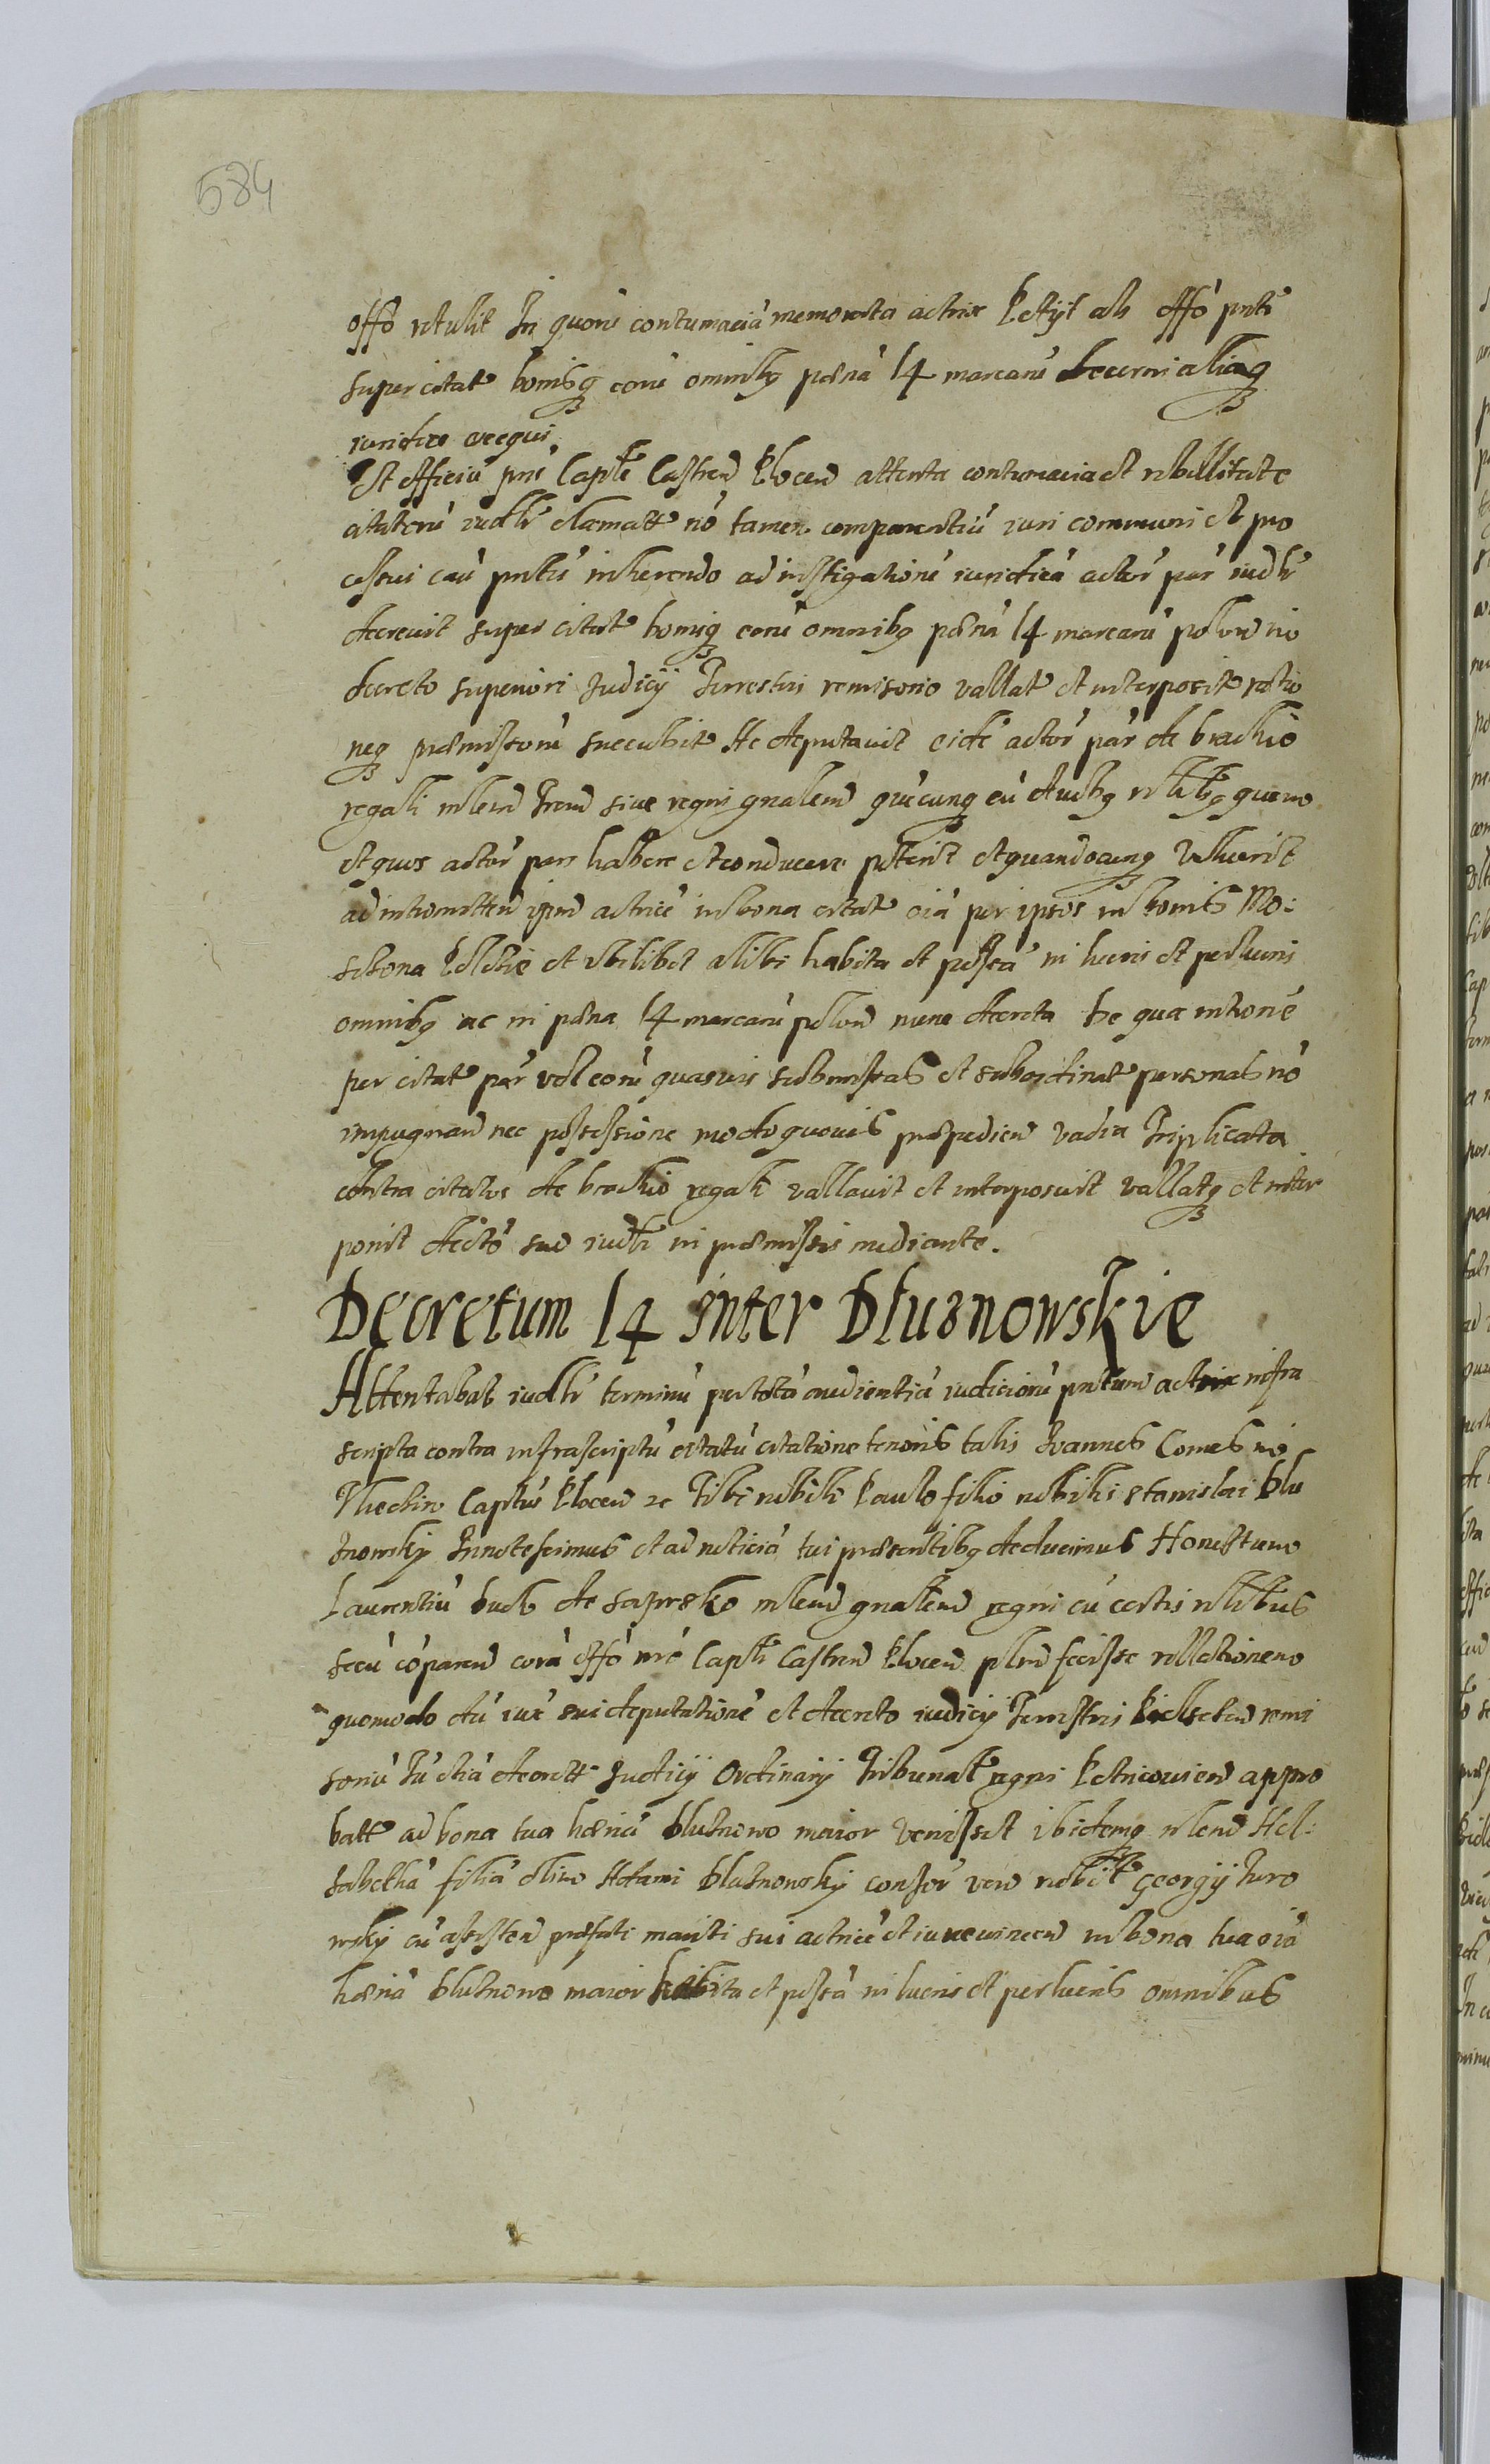 584
offo retulit In quorū contumaciā memorata actrix Petijt ab offō pntē
super citat bonisq eorū omnibq pœnā 14 marcarū Decerni aliaq
iuridice exequi
Et officiū pns Captle Castren Plocen attenta contumacia et rebellitate
citatorū iudlr clamatt nō tamen comparentiū iuri communi et pro
cessui cau pntis inherendo ad instigationē iuridicā actor par iudlr
decrevit super citat bonisq eorū omnibq pœnā 14 marcarū polon
decreto superiori Judicij Terrestri remissorio vallat et interposit
neq præmissorū succubit Ac deputavit eidē actor par de brachio
regali mlem sive regni gnalem quēcunq cū duobq nblibq quem
et quos actor pars habere et conducere poterit et quandocunq voluerit
ad intromitten ipm actricē in bona citat oīa per ipsos in bonis Mo:
et ubilibet alibi habita et possa in lucris et perlucris
omnibq ac in pœna 14 marcarū polon nunc decreta De qua
per citat par vel eorū quasvis submissas et subordinat personas nō
impugnan nec possessione modo quovis præpedien vadia Triplicata
contra citatos de brachio regali vallavit et interposuit vallatq et inter
ponit decto suo iudli in præmissis mediante.
Decretum 14 inter Dłuznowskie
Attentabat iudlr terminū per totā audientiā iudiciorū pntium actrix infra
scripta contra infrascriptū citatū citatione tenoris talis Ioannes Comes
Thechin Captus Plocen Tibi nobili Paulo filio nobilis Stanislai Dlu
znowsky Innotescimus et ad noticiā tui præsentibq deducimus Honestum
Laurentiū de mlem gnalem regni cū certis nblibus
secū cōparen corā offō nrō Captli Castren Plocen plm fecisse rellationem
quomodo dū iux sui deputationē et decreto iudicij Terrestris remi
soriū Tū etiā decrett Judicij Ordinarij Tribunal regni Petricovien appro
batt ad bona tua hæria Dluznowo maior venisset ibidemq mlem Hel:
sabethā filiā olim Adami Dluznowsky consor vero nobil Georgij
wsky cū assisten præfati mariti sui actricē et in bona tua oīa
hæria Dluznowo maior habita et possa in lucris et perlucris omnibus